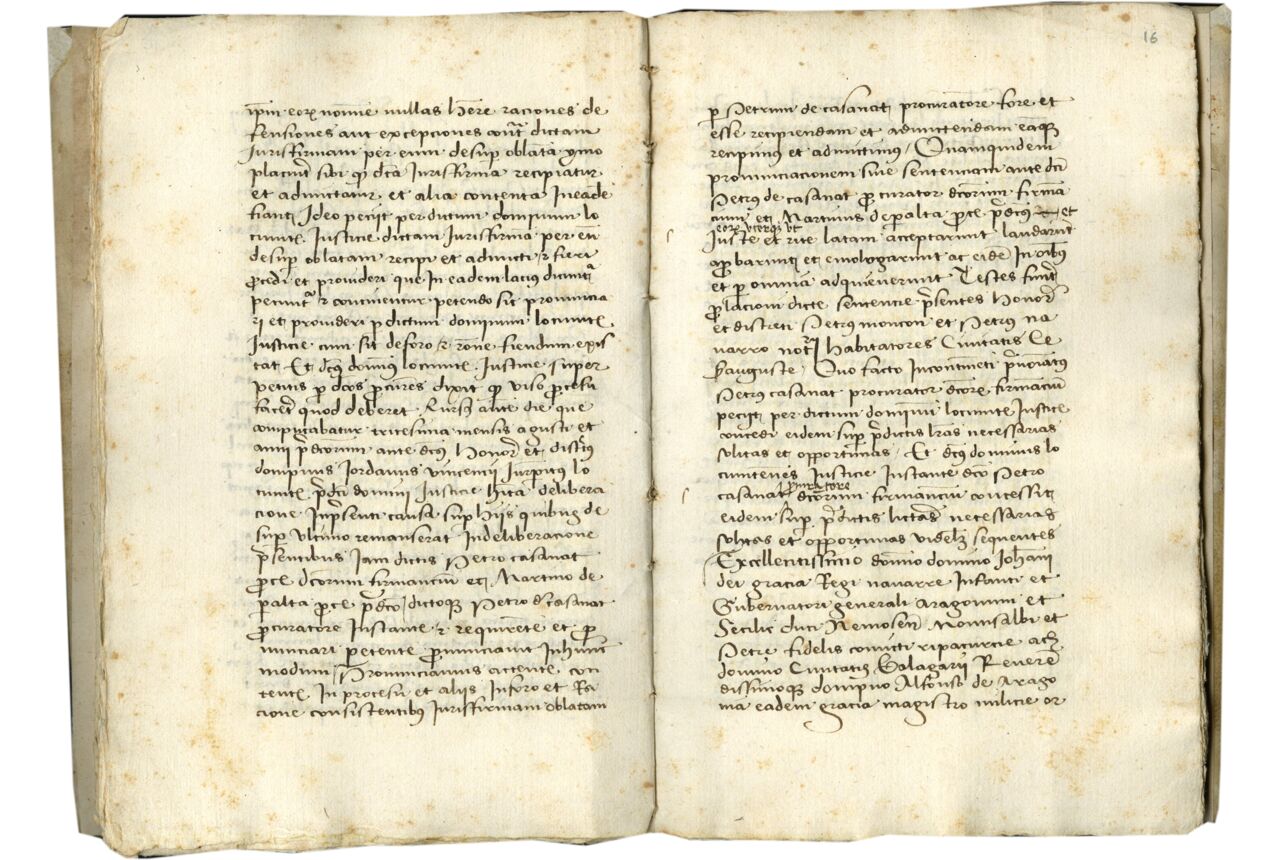 ip̄m eorꝫ nomine nullas hēre raciones de
fensiones aut excepciones cont̄ dictam
Jurisfirmam per eum desup oblata ymo
placuit sibi qd̄ dc̄a Jurisfirma recipiatur
et admictatur et alia contenta In eade
fiant Ideo peciit per dictum dompnum lo
cumtē. Justicie dictam Jurisfirma per eū
desup oblatam recipi et admicti & fieri
procedi et provideri que In eadem lacius dicunt᷑
petunt᷑ & continentur petendo sic pronuncia
ri et provideri p dictum dominum locumtē.
Justicie cum sic de foro & rōne fiendum exis
tat Et dc̄us dominus locumtē. Justicie super
petitis p dc̄os pcūres dixit qd̄ viso pcesu
faceret quod deberet Rursꝫ ante die que
computabatur tricesima mensis agusti et
anni p̄dcorum ante dc̄us Honor. et discret᷑
dompnus Jordanus vincencii Jurꝑitus lo
cumtē. p̄dc̄i domini Justicie hita delibera
cione In p̄senti causa sup hiis quibus de
sup ultimo remanserat In deliberacione
p̄sentibus Jam dictis Petro casanat
proc̄e dcorum firmancium et Martino de
peralta proc̄e p̄dc̄o dictoqꝫ Petro d casanat
procuratore Instante & requirēte et pro
nunciari petente pronunciavit In hunc
modum Pronunciamus attente. con
tentē. In procesu et aliis In foro et Ra
cione consistentibꝫ Jurisfirmam oblatam
16
p Petrum de casanat procuratore fore et
esse recipiendam et admittendam eaqꝫ
recipimus et admittimus / Quamquidem
pronunciacionem sive sentenciam ante dc̄i
Petrus de casanat procurator dcorum firma
cium et Martinus de peralta proc̄e p̄dc̄us et
eorꝫ uterqꝫ ut
Juste et rite latam acceptarunt laudarūt
aprobarunt et emologarunt ac eidē In oībus
et p omnia adquieverunt Testes fuerūt
prolacioni dicte sentencie p̄sentes Honor.
et discreti Petrus moncon et Petrus na
varro not᷑ habitatores Civitatis Ce
sarauguste / Quo facto Incontineti p̄nōiatus
Petrus casanat procurator dcore. firmaciū
peciit per dictum dominū locumtē Justicie
concedi eidem sup p̄dictis lras necessarias
solitas et opportunas / Et dc̄us dominus lo
cumtenēs Justicie Instante dc̄o Petro
procuratore
casanat dcorum firmanciū concessit
eidem sup p̄dictis litteras necessarias
solitas et opportunas videlꝫ sequentes
Excellentissimo domino domino Johani
dei gracia Regi navarre Infanti et
Gubernatori generali Aragonum et
Secilie duci Nemosen̄. Montisalbi et
Petre fidelis comiti ripacurcie ac
domino Civitatis Balagarii Reveren
dissimoqꝫ dompno Alfonso de Arago
nia eadem gracia magistro milicie or